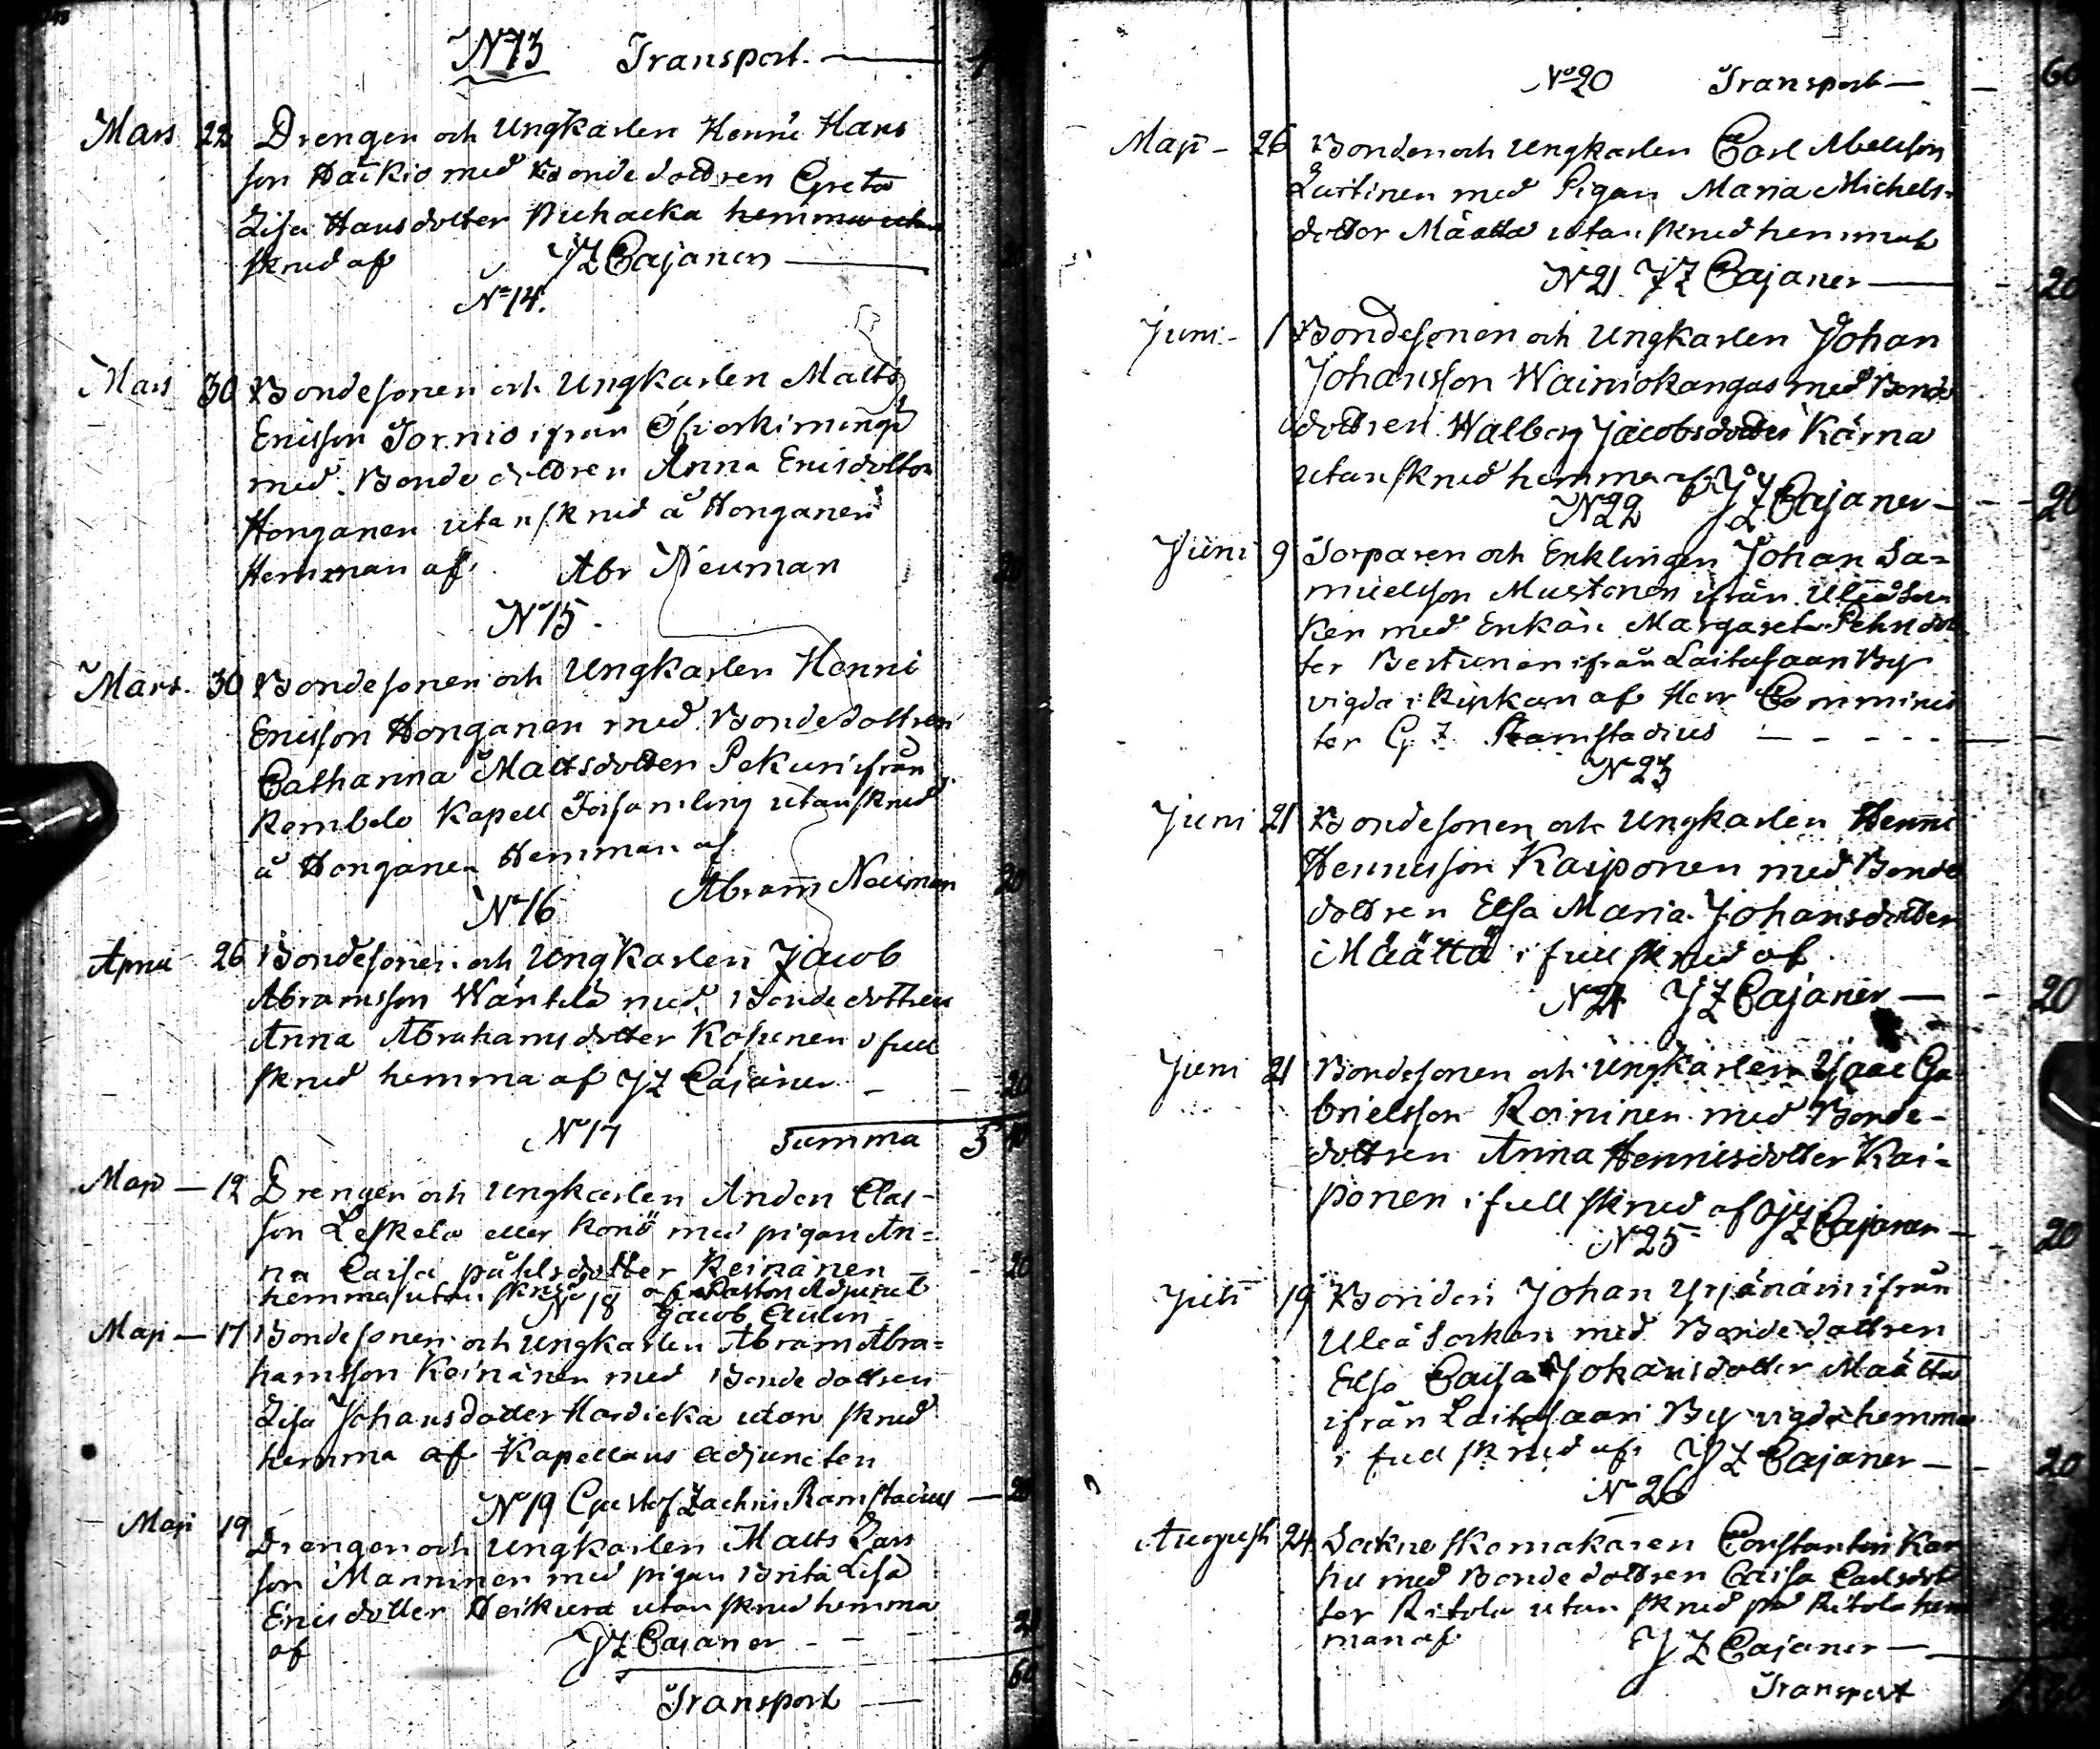 N 13 Transport.
Mars 22 Drengen och Ungkarlen Henric Hans
son Häikiö med Bondedottren Greta
Lisa Hansdotter Puhacka hemma utan
skrud af JZ Cajaner
N 14.
Mars 30 Bondesonen och Ungkarlen Matts
Ericsson Tornio ifrån
med Bonde dottren Anna Ericsdotter
Honganen utan skrud å Honganen
Hemman af Abr Neuman 20
N 15.
Mars 30 Bondesonen och Ungkarlen Henric
Ericsson Honganen med Bondedottren
Catharina Mattsdotter Pekuri ifrån
Kembele Kapell Församling utan skrud
å Honganen Hemman af
Abram Neuman 20
N 16
April 26 Bondesonen och Ungkarlen Jacob
Abramsson Wäntilä med Bondedottren
Anna Abrahamsdotter Kopinen i full
skrud hemma af JZ Cajaner 20
N 17 Summa 5
Maji 12 Drengen och Ungkarlen Anders Clas-
son Leskelä eller Koriö med pigan An=
na Caisa påhlsdotter Keinänen 20
hemma utan skrud af Pastors Adjunct
N 18 Jacob Aulin
Maji 17 Bondesonen och Ungkarlen Abram Abra=
hamsson Keinänen med Bondedottren
Lisa Johansdotter Hardicka utan skrud
hemma af Kapellans adjuncten
N 19 Gustof Zachris Ramstadius 20
Maji 19
Drengen och Ungkarlen Matts Lars
son Manninen med pigan Brita Lisa
Ericsdotter Heikura utan skrud hemma
af JZ Cajaner 20
60
Transport
N 20 Transport 60
Maji 26 Bonden och Ungkarlen Carl Abelsson
Luttinen med Pigan Maria Michels-
dotter Määttä utan skrud hemma af
N 21 JZ Cajaner 20
Juni 1 Bondesonen och Ungkarlen Johan
Johansson Wainiokangas med Bonde
dottren Walborg Jacobsdotter Kärnä
utan skrud hemma af JZ Cajaner 20
N 22
Juni 9 Torparen och Enklingen Johan Sa=
muelsson Mustonen ifrån Uleå Soc
ken med Enkan Margareta Pehrsdot
ter Bertunen ifrån Laitasaari By
vigda i Kyrkan af Herr Comminis
ter G Z Ramstadius
N 23
Juni 21 Bondesonen och Ungkarlen Henric
Henricsson Kaiponen med Bonde
dottren Elsa Maria Johansdotter
Määttä i full skrud af
N 24 JZ Cajaner 20
Juni 21 Bondesonen och Ungkarlen Isaac Ga
brielsson Roininen med Bonde-
dottren Anna Henricsdotter Kai=
ponen i full skrud af JZ Cajaner 20
N 25
Julii 19 Bonden Johan Yrjänäin ifrån
Uleå Socken med Bondedottren
Elsa Caisa Johansdotter Määttä
ifrån Laitasaari By vigda hemma
i full skrud af JZ Cajaner 20
N 26
August 24 Sockne skomakaren Constantin Kar
hu med Bondedottren Caisa Carlsdot
ter Ritola utan skrud på Ritola hem
man af JZ Cajaner
Transport